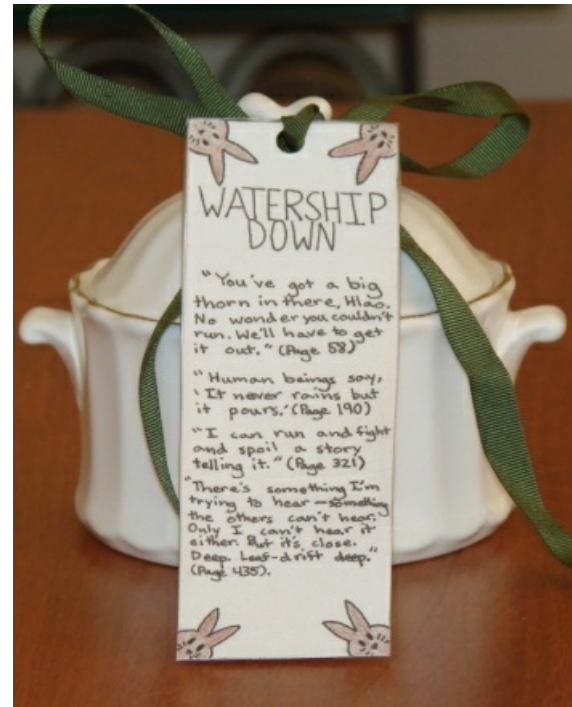 WATERSHIP
DOWN
"You've got a big
thorn in there, Hlao.
No wonder you couldn't
run. We'll have to get
it out." (Page 58)
"Human beings say,
'It never rains but
it pours.' (Page 190)
"I can run and fight
and spoil a story
telling it." (Page 321)
"There's something I'm
trying to hear—something
the others can't hear.
Only I can't hear it
either. But it's close.
Deep. Leaf-drift deep."
(Page 435).